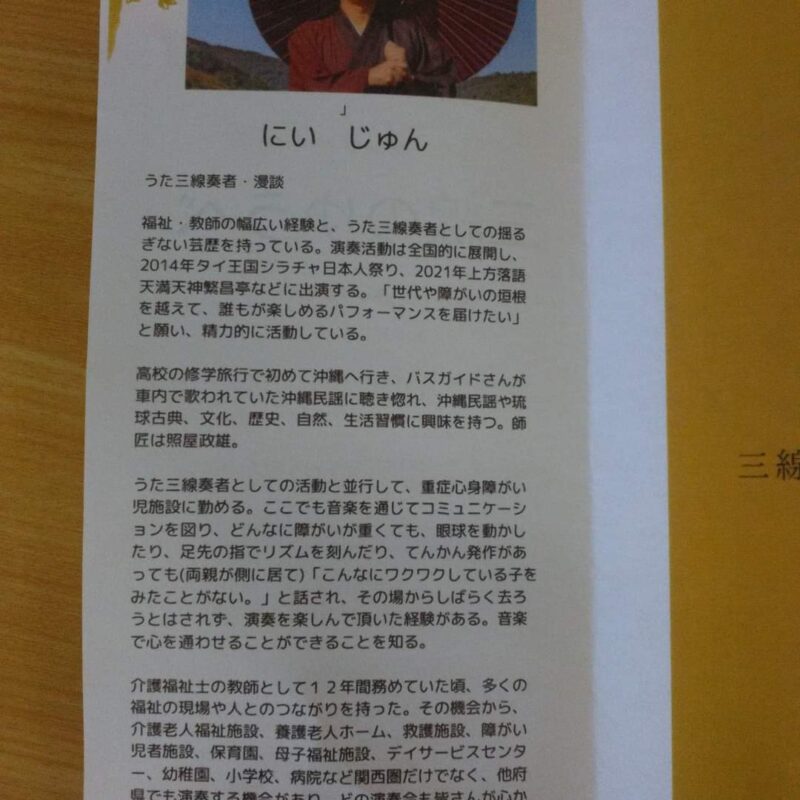 」
にい　じゅん
うた三線奏者・漫談
福祉・教師の幅広い経験と、うた三線奏者としての揺る
ぎない芸歴を持っている。演奏活動は全国的に展開し、
2014年タイ王国シラチャ日本人祭り、2021年上方落語
天満天神繁昌亭などに出演する。「世代や障がいの垣根
を越えて、誰もが楽しめるパフォーマンスを届けたい」
と願い、精力的に活動している。
高校の修学旅行で初めて沖縄へ行き、バスガイドさんが
車内で歌われていた沖縄民謡に聴き惚れ、沖縄民謡や琉
球古典、文化、歴史、自然、生活習慣に興味を持つ。師
匠は照屋政雄。
うた三線奏者としての活動と並行して、重症心身障がい
児施設に勤める。ここでも音楽を通じてコミュニケーシ
ョンを図り、どんなに障がいが重くても、眼球を動かし
たり、足先の指でリズムを刻んだり、てんかん発作があ
っても(両親が側に居て)「こんなにワクワクしている子を
みたことがない。」と話され、その場からしばらく去ろ
うとはされず、演奏を楽しんで頂いた経験がある。音楽
で心を通わせることができることを知る。
介護福祉士の教師として１２年間務めていた頃、多くの
福祉の現場や人とのつながりを持った。その機会から、
介護老人福祉施設、養護老人ホーム、救護施設、障がい
児者施設、保育園、母子福祉施設、デイサービスセンタ
ー、幼稚園、小学校、病院など関西圏だけでなく、他府
県でも演奏する機会があり、どの演奏会も皆さんが心か
三線